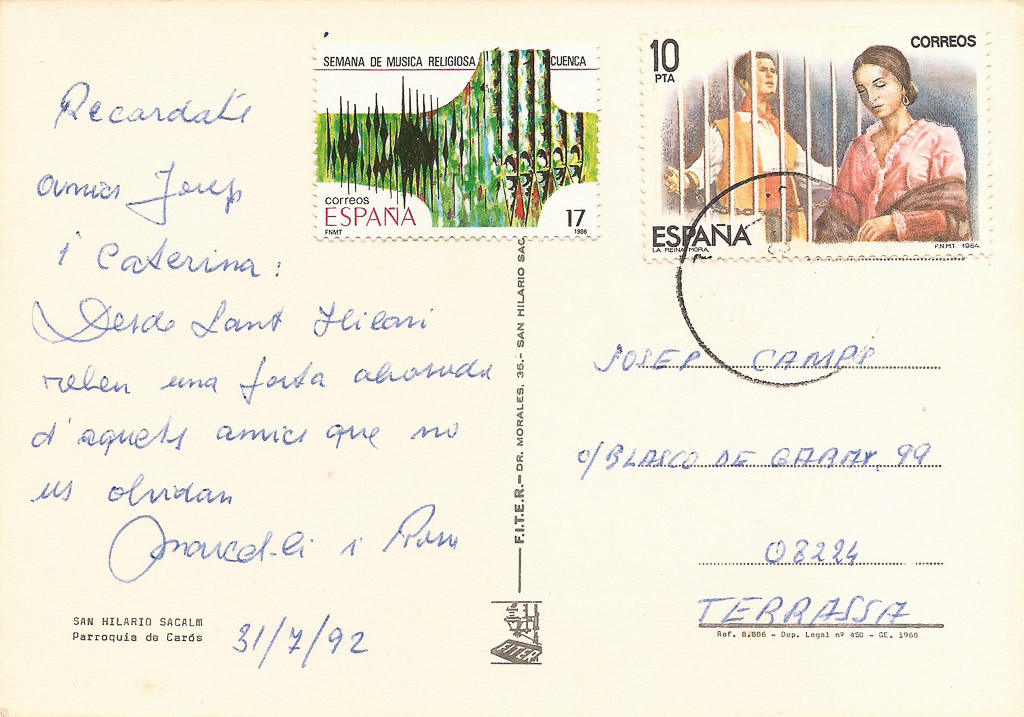 Recordats
amics Josep
i Caterina:
Desde Sant Hilari
reben una forta abrosada
d'aquets amics que no
us olvidan
Marcel·li i Rosa
SAN HILARIO SACALM
Parroquia de Carós
31/7/92
SEMANA DE MUSICA RELIGIOSA CUENCA
correos
ESPAÑA
17
FNMT
1986
F.I.T.E.R.- DR. MORALES, 35.- SAN HILARIO SAC
FITER
10
PTA
CORREOS
ESPAÑA
LA REINA MORA
F.N.M.T. 1984
JOSEP CAMPS
c/BLASCO DE GARAY, 99
08224
TERRASSA
Ref. 8.886 - Dep. Legal nº 450 - GE. 1968